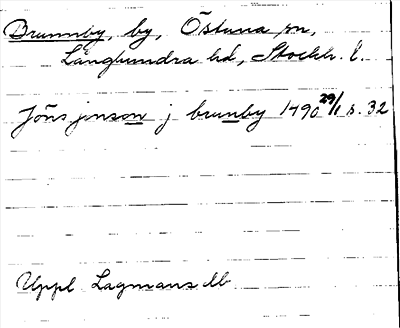 Brunnby, by, Östuna sn,
Långhundra hd, Stockh. l.
Jöns jenson j brunby 1490 29/1 s. 32
Uppl Lagmans db